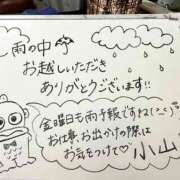 雨の中☂
お越しいただき
ありがとうございます!!
金曜日も雨予報ですね(>_<)
お仕事、お出かけの際は
お気をつけて♡
小山